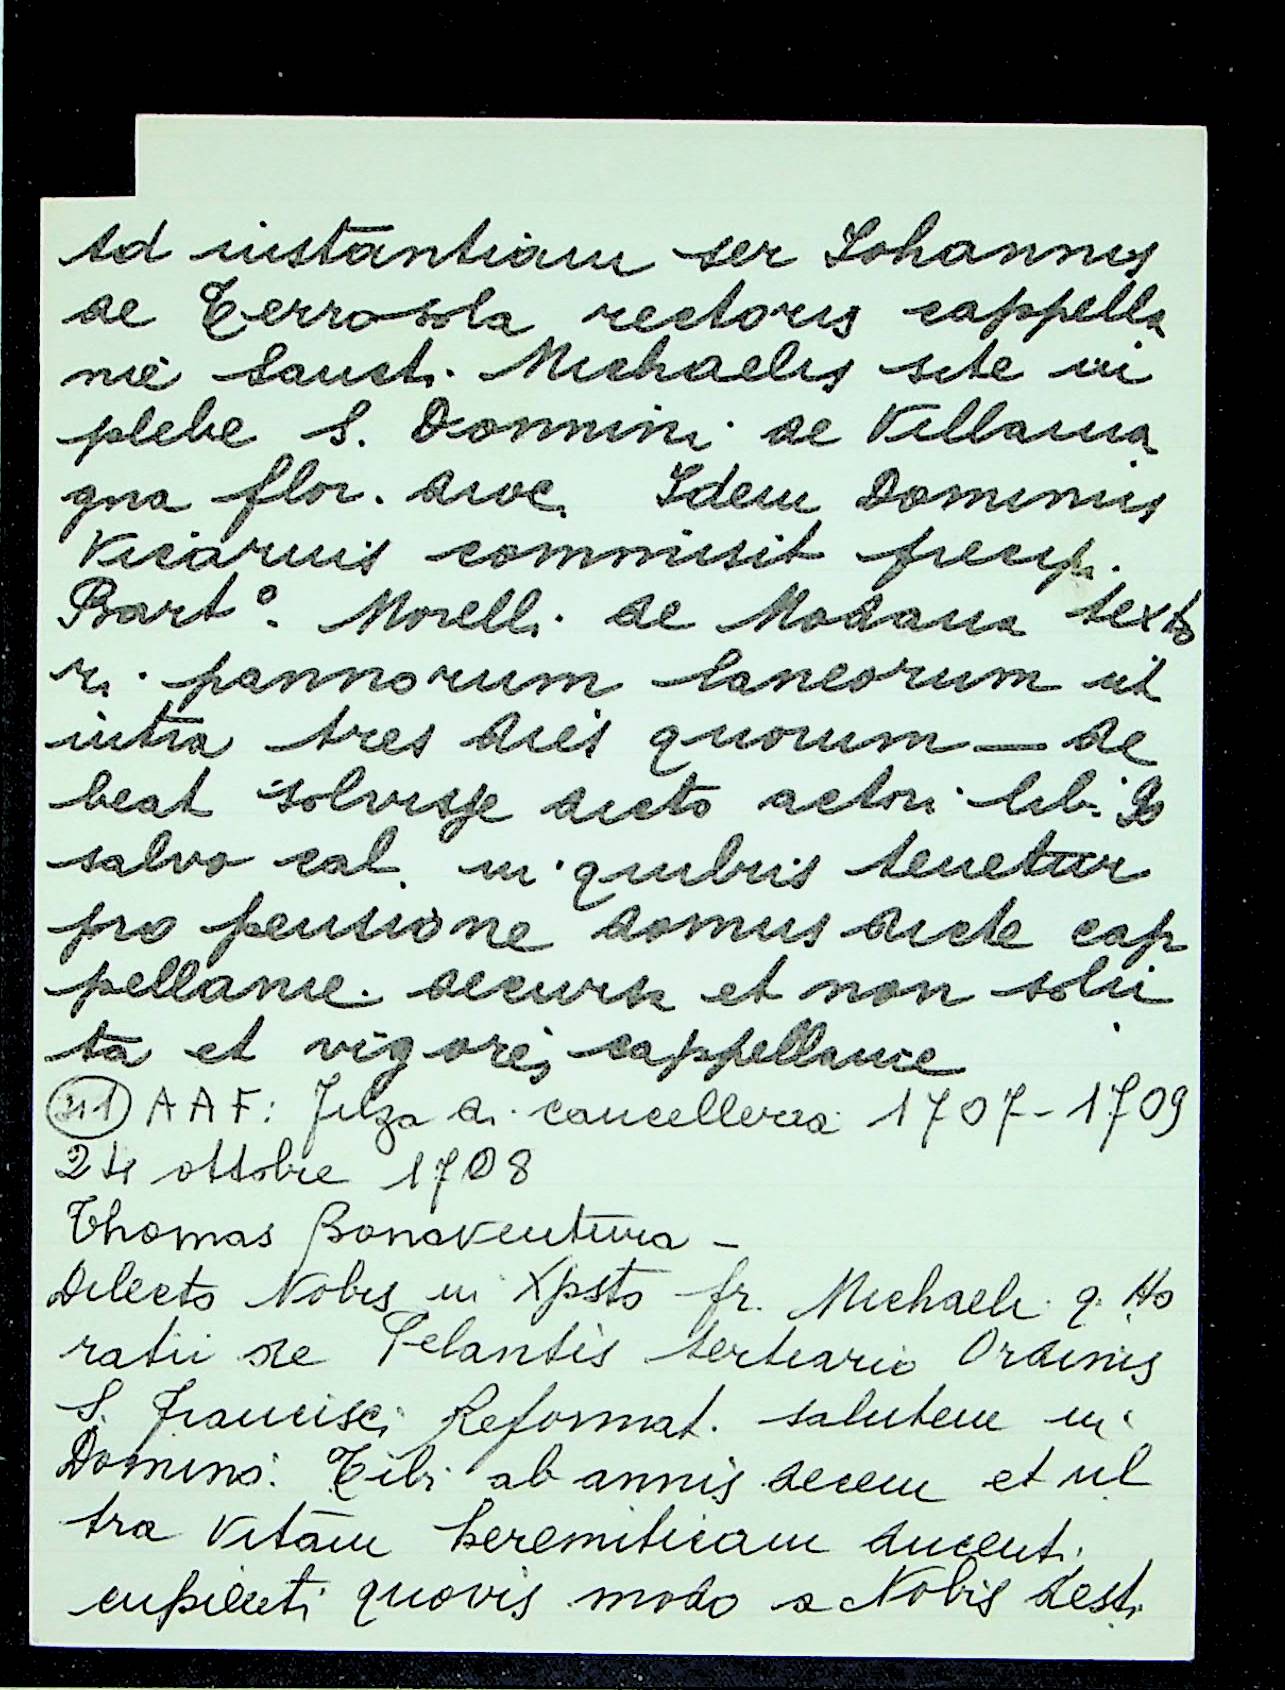 ad instantiam ser Johannis
de Terrosola rectoris cappella
nie Sancti Michaelis site in
plebe S. Donnini de Villama
gna flor. dioc. Idem Dominus
Vicarius commisit
Bart°. Morelli de Modana texto
ri pannorum laneorum ut
intra tres dies quorum — de
beat solvisse dicto actori lib.
salvo cal. in quibus tenetur
pro pensione domus dicte cap
pellanie decursa et non solu
ta et vigore cappellanie
AAF: Filza di cancelleria 1707-1709
24 ottobre 1708
Thomas Bonaventura -
Dilecto Nobis in Xpsto fr. Michaeli q. Ho
ratii de Pelantis tertiario Ordinis
S. Francisci Reformat. salutem in
Domino. Tibi ab annis decem et ul
tra vitam heremiticam ducenti
cupienti quovis modo a Nobis desti